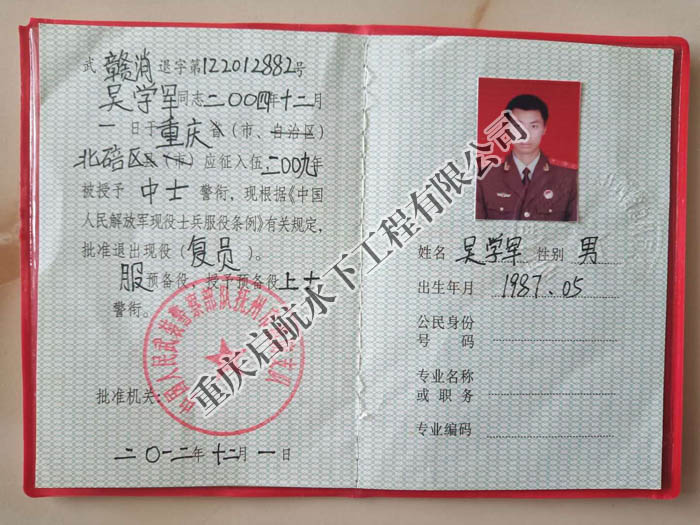 武 赣消 退字第122012882号
吴学军同志二〇〇四年十二月
一日于重庆省（市、自治区）
北碚区县（市）应征入伍二00九年
被授予 中士 警衔，现根据《中国
人民解放军现役士兵服役条例》有关规定，
批准退出现役（复员）。
服预备役，授予预备役上士
警衔。
批准机关：
二〇一二年十二月一日
中国人民武装警察部队抚州市消防支队
姓名 吴学军 性别 男
出生年月 1987.05
公民身份
号 码
专业名称
或职务
专业编码
重庆启航水下工程有限公司